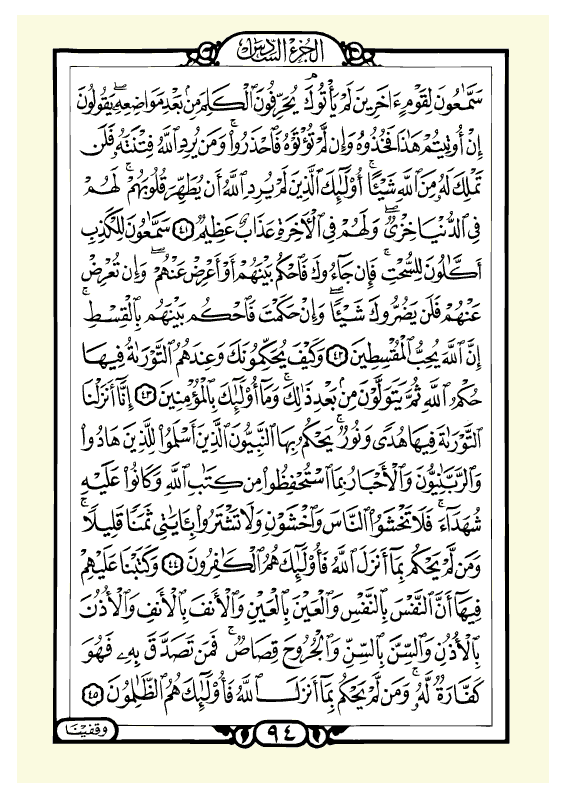 الجزء السادس
سَمَّٰعُونَ لِقَوْمٍ ءَاخَرِينَ لَمْ يَأْتُوكَ ۖ يُحَرِّفُونَ ٱلْكَلِمَ مِنۢ بَعْدِ مَوَاضِعِهِۦ ۖ يَقُولُونَ
إِنْ أُوتِيتُمْ هَٰذَا فَخُذُوهُ وَإِن لَّمْ تُؤْتَوْهُ فَٱحْذَرُوا۟ ۚ وَمَن يُرِدِ ٱللَّهُ فِتْنَتَهُۥ فَلَن
تَمْلِكَ لَهُۥ مِنَ ٱللَّهِ شَيْـًٔا ۚ أُو۟لَٰٓئِكَ ٱلَّذِينَ لَمْ يُرِدِ ٱللَّهُ أَن يُطَهِّرَ قُلُوبَهُمْ ۚ لَهُمْ
فِى ٱلدُّنْيَا خِزْىٌ ۖ وَلَهُمْ فِى ٱلْءَاخِرَةِ عَذَابٌ عَظِيمٌ ٤١ سَمَّٰعُونَ لِلْكَذِبِ
أَكَّٰلُونَ لِلسُّحْتِ ۚ فَإِن جَآءُوكَ فَٱحْكُم بَيْنَهُمْ أَوْ أَعْرِضْ عَنْهُمْ ۖ وَإِن تُعْرِضْ
عَنْهُمْ فَلَن يَضُرُّوكَ شَيْـًٔا ۖ وَإِنْ حَكَمْتَ فَٱحْكُم بَيْنَهُم بِٱلْقِسْطِ ۚ
إِنَّ ٱللَّهَ يُحِبُّ ٱلْمُقْسِطِينَ ٤٢ وَكَيْفَ يُحَكِّمُونَكَ وَعِندَهُمُ ٱلتَّوْرَىٰةُ فِيهَا
حُكْمُ ٱللَّهِ ثُمَّ يَتَوَلَّوْنَ مِنۢ بَعْدِ ذَٰلِكَ ۚ وَمَآ أُو۟لَٰٓئِكَ بِٱلْمُؤْمِنِينَ ٤٣ إِنَّآ أَنزَلْنَا
ٱلتَّوْرَىٰةَ فِيهَا هُدًى وَنُورٌ ۚ يَحْكُمُ بِهَا ٱلنَّبِيُّونَ ٱلَّذِينَ أَسْلَمُوا۟ لِلَّذِينَ هَادُوا۟
وَٱلرَّبَّٰنِيُّونَ وَٱلْأَحْبَارُ بِمَا ٱسْتُحْفِظُوا۟ مِن كِتَٰبِ ٱللَّهِ وَكَانُوا۟ عَلَيْهِ
شُهَدَآءَ ۚ فَلَا تَخْشَوُا۟ ٱلنَّاسَ وَٱخْشَوْنِ وَلَا تَشْتَرُوا۟ بِـَٔايَٰتِى ثَمَنًا قَلِيلًا ۚ
وَمَن لَّمْ يَحْكُم بِمَآ أَنزَلَ ٱللَّهُ فَأُو۟لَٰٓئِكَ هُمُ ٱلْكَٰفِرُونَ ٤٤ وَكَتَبْنَا عَلَيْهِمْ
فِيهَآ أَنَّ ٱلنَّفْسَ بِٱلنَّفْسِ وَٱلْعَيْنَ بِٱلْعَيْنِ وَٱلْأَنفَ بِٱلْأَنفِ وَٱلْأُذُنَ
بِٱلْأُذُنِ وَٱلسِّنَّ بِٱلسِّنِّ وَٱلْجُرُوحَ قِصَاصٌ ۚ فَمَن تَصَدَّقَ بِهِۦ فَهُوَ
كَفَّارَةٌ لَّهُۥ ۚ وَمَن لَّمْ يَحْكُم بِمَآ أَنزَلَ ٱللَّهُ فَأُو۟لَٰٓئِكَ هُمُ ٱلظَّٰلِمُونَ ٤٥
٩٤
وقفينا